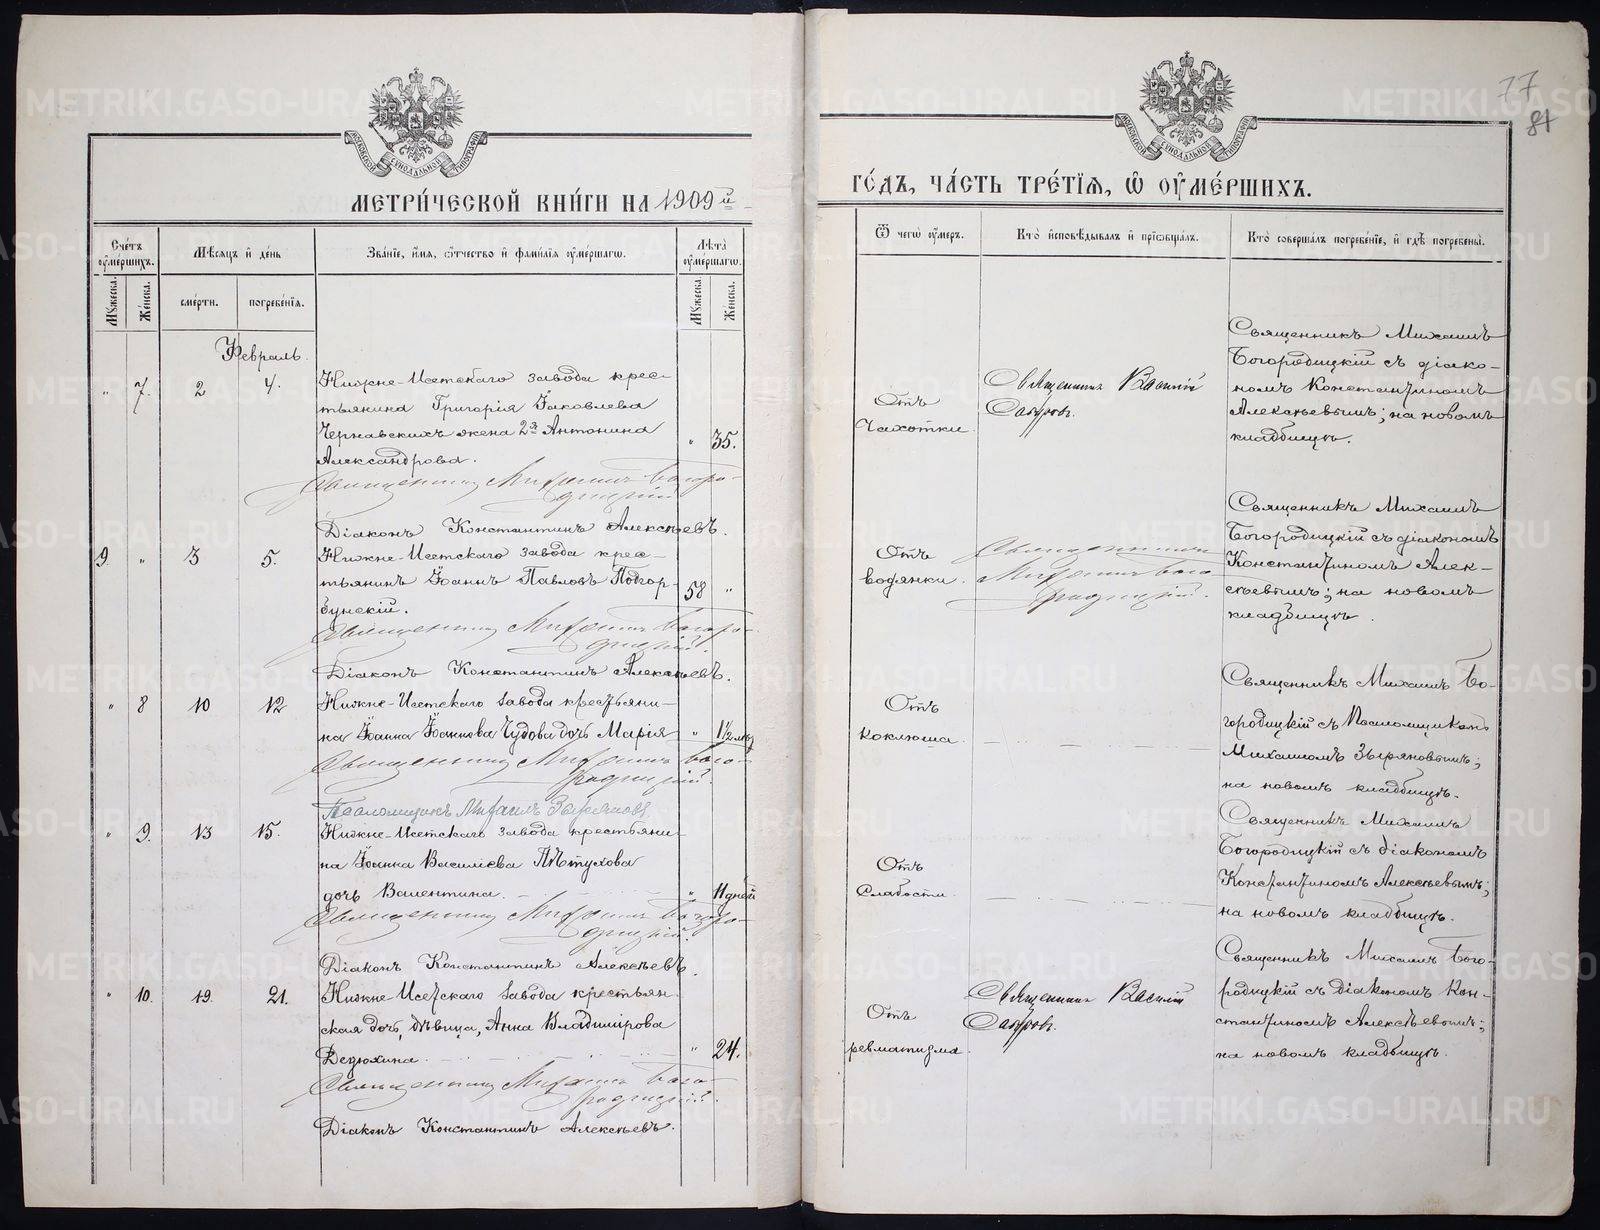 77
81
МОСКОВСКОЙ СѴНОДАЛЬНОЙ ТИПОГРАФІИ
МОСКОВСКОЙ СѴНОДАЛЬНОЙ ТИПОГРАФІИ
МЕТРИ́ЧЕСКОЙ КНИ́ГИ НА 1909й
ГО́ДЪ, ЧА́СТЬ ТРЕ́ТІѦ, Ѡ҆ ОУ҆МЕ́РШИХЪ.
Сче́тъ оу҆ме́ршихъ.
Мꙋжеска.
Же́нска.
Мѣ́сяцъ и҆ де́нь
сме́рти.
погребе́нїѧ.
Зва́нїе, и҆́мѧ, ѻ҆́тчество и҆ фамилїѧ оу҆ме́ршагѡ.
Лѣ̑та̀ оу҆ме́ршагѡ.
Мꙋжеска.
Же́нска.
Ѿ чегѡ̀ оу҆́меръ.
Кто̀ и҆сповѣ́дывалъ и҆ прїѡбща́лъ.
Кто̀ соверша́лъ погребе́нїе, и҆ гдѣ̀ погребены̀.
Февраль.
" 7. 2 4.
Нижне-Исетскаго завода крес-
тьянина Григорія Іаковлева
Чернавскихъ жена 2я Антонина
Александрова.
" 35.
Священникъ Михаилъ Богоро-
дицкій
Діаконъ Константинъ Алексѣевъ.
Отъ
Чахотки.
Священникъ Василій
Священникъ Михаилъ
Богородицкій съ діако-
номъ Константиномъ
Алексѣевымъ; на новомъ
кладбищѣ.
9. " 3 5.
Нижне-Исетскаго завода крес-
тьянинъ Іоаннъ Павловъ Подгор-
бунскій.
58 "
Священникъ Михаилъ Богоро-
дицкій.
Діаконъ Константинъ Алексѣевъ.
Отъ
водянки.
Священникъ
Михаилъ Бого-
родицкій.
Священникъ Михаилъ
Богородицкій съ діакономъ
Константиномъ Алек-
сѣевымъ; на новомъ
кладбищѣ.
" 8 10 12
Нижне-Исетскаго завода крестьяни-
на Іоанна Іоаннова Чудова дочь Марія
" 1½ мѣс
Священникъ Михаилъ Бого-
родицкій.
Псаломщикъ Михаилъ Зыряновъ
Отъ
коклюша.
Священникъ Михаилъ Бо-
городицкій съ Псаломщикомъ
Михаиломъ Зыряновымъ;
на новомъ кладбищѣ.
" 9. 13 15.
Нижне-Исетскаго завода крестьяни-
на Іоанна Василіева Пѣтухова
дочь Валентина.
" 11 дней
Священникъ Михаилъ Богоро-
дицкій.
Діаконъ Константинъ Алексѣевъ.
Отъ
Слабости.
Священникъ Михаилъ
Богородицкій съ діакономъ
Константиномъ Алексѣевымъ;
на новомъ кладбищѣ.
" 10. 19. 21.
Нижне-Исетскаго завода крестьян-
ская дочь, дѣвица, Анна Владимірова
Ведюхина.
" 24.
Священникъ Михаилъ Бого-
родицкій.
Діаконъ Константинъ Алексѣевъ.
Отъ
ревматизма.
Священникъ Василій
Священникъ Михаилъ Бого-
родицкій съ діакономъ Кон-
стантиномъ Алексѣевымъ;
на новомъ кладбищѣ.
METRIKI.GASO-URAL.RU